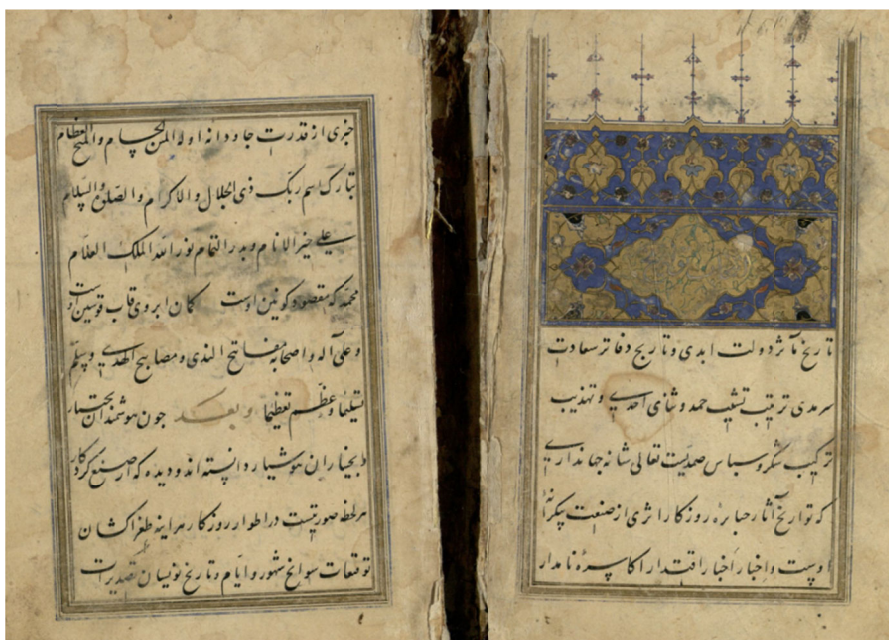 تاریخ مآثر دولت ابدی و تاریخ دفاتر سعادت
سرمدی ترتیب تشبیب حمد و ثنای احدی و تهذیب
ترکیب شکر و سپاس صمدیت تعالی شانه جهانداری
که تواریخ آثار جبابره روزکار اثری از صنعت پیکرانه
اوست و اخبار اخبار اقتدار اکاسره نامدار
خبری از قدرت جاودانه او له المن الجسام والمنح العظام
تبارک اسم ربک ذی الجلال والاکرام والصلوة والسلام
علی خیر الانام و بدر التمام نور الله الملک العلام
محمد که مقصود کونین اوست کمان ابروی قاب قوسین اوست
و علی آله و اصحابه مفاتیح الندی و مصابیح الهدی وسلم
تسلیما و عظم تعظیما و بعد چون هوشمندان بختیار
و بختیاران هوشیار دانسته اند و دیده که از صنع کردکار
هر لحظه صورتیست در اطوار روزکار هر اینه طغراکشان
توقعات سوانح شهور و ایام و تاریخ نویسان تقدیرات